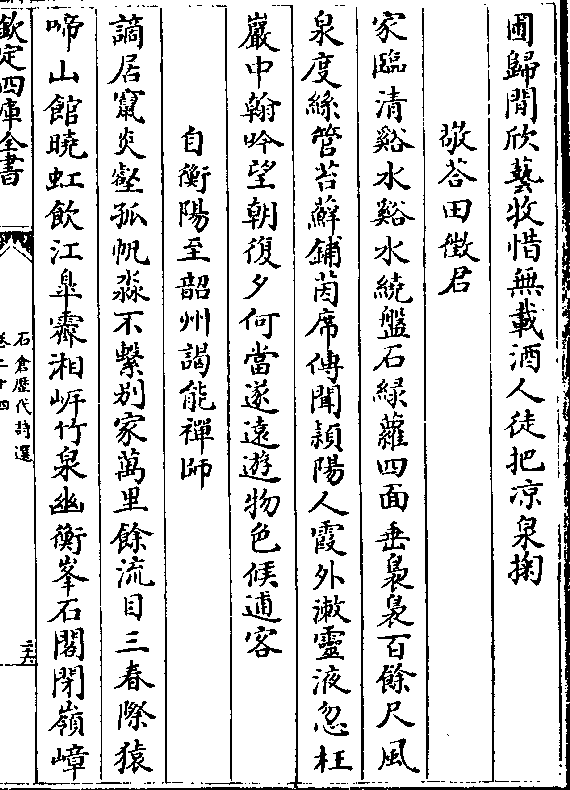 圃歸閒欣藝牧惜無載酒人徒把凉泉掬
敬荅田徵君
家臨清谿水谿水繞盤石綠蘿四面垂裊裊百餘尺風
泉度絲管苔蘚鋪茵席傳聞頴陽人霞外漱靈液忽枉
巖中翰吟望朝復夕何當遂遠遊物色候逋客
自衡陽至韶州謁能禪師
謫居竄炎壑孤帆淼不繫别家萬里餘流目三春際猿
啼山館曉虹飲江臯霽湘岸竹泉幽衡峯石囷閉嶺嶂
欽定四庫全書
石倉歴代詩選
卷二十四